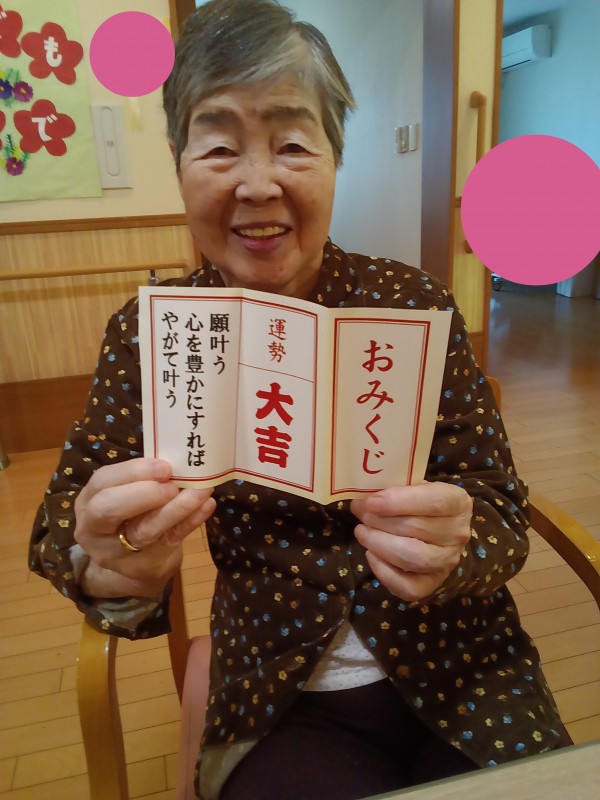 おみくじ
運勢
大吉
願叶う
心を豊かにすれば
やがて叶う
も
で